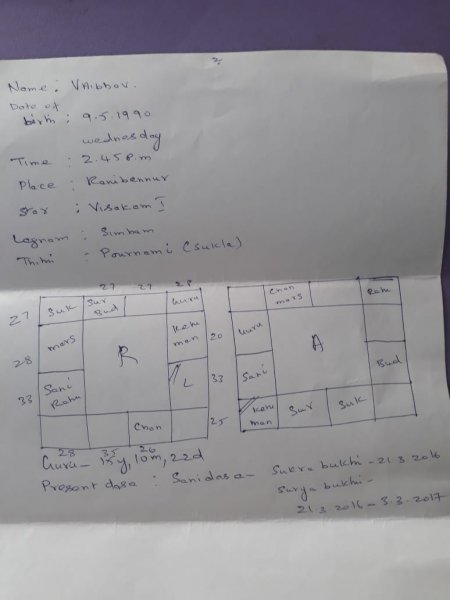 Name : VAibhav.
Date of
birth : 9.5.1990
wednesday
Time : 2.45 P.m
Place : Ranibennur
Star : Visakam I
Lagnam : Simham
Thithi : Pournami (Sukla)
27 27 28
27 Suk Sur Bud Guru
28 mars R Kethu man
33 Sani Rahu L
Chan
28 35 26
Chan mars Rahu
Guru 20 A
Sani 33 Bud
25 Kethu man Sur Suk
Guru - 15y, 10m, 22d
Present dasa : Sani dasa - Sukra bukhi - 21.3.2016
Surya bukhi -
21.3.2016 - 3.3.2017